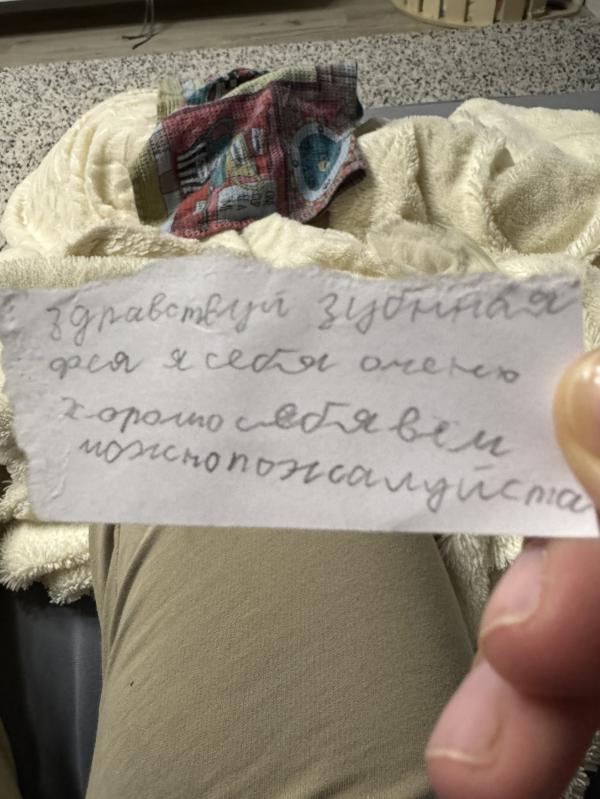 здравствуй зубнная
фея я себя очень
хорошо себя вём
можно пожалуйста